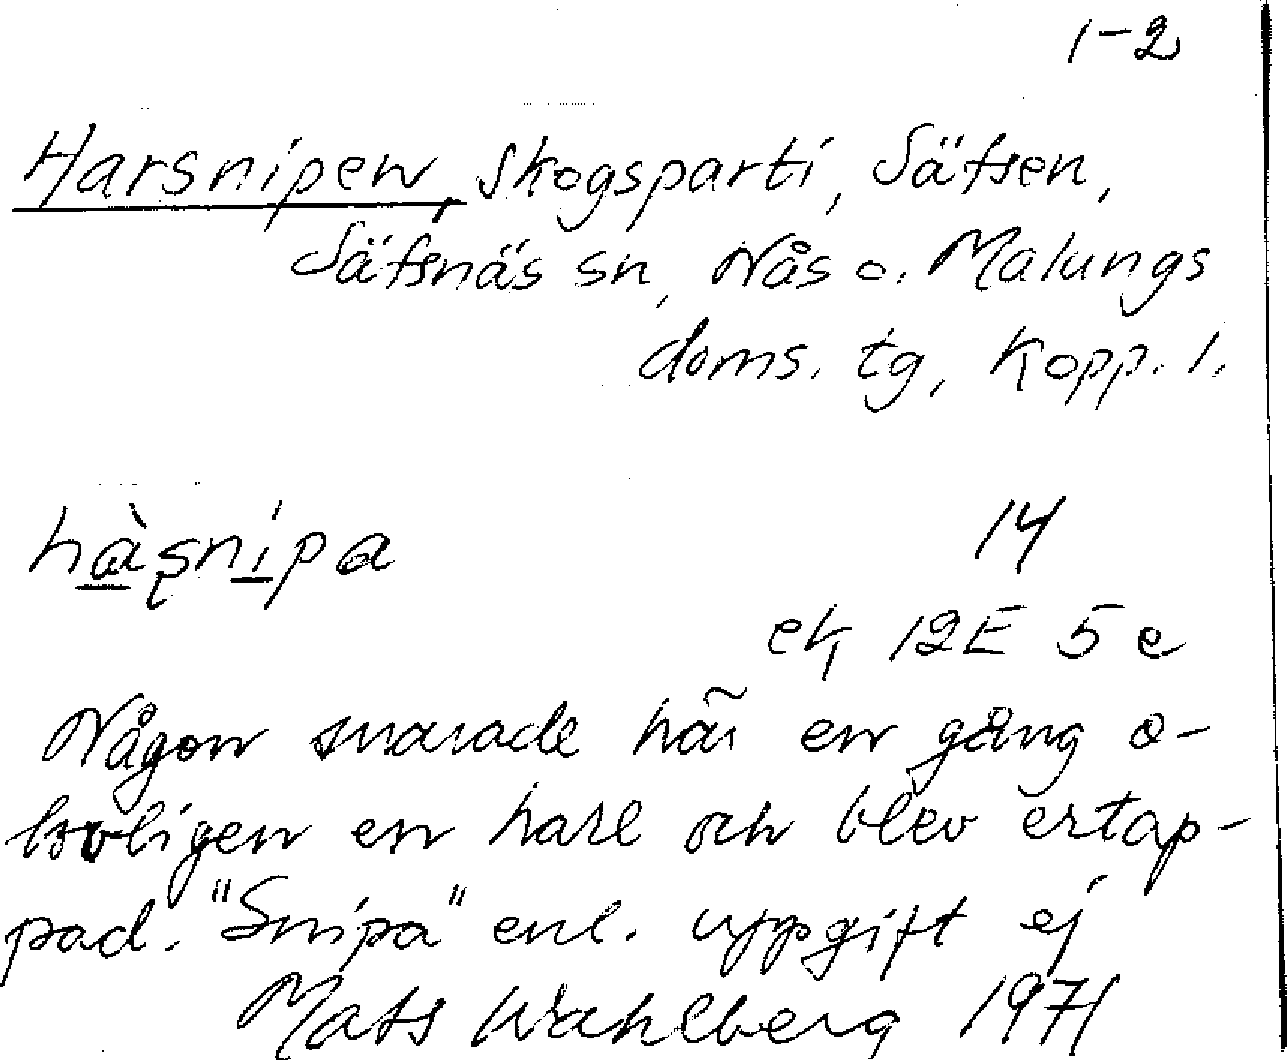 1-2
Harsnipen, Skogsparti, Säfsen,
Säfsnäs sn, Nås o. Malungs
doms. tg, Kopp. l.
hàşnipa
14
ek 12E 5e
Någon snarade här en gång o-
lovligen en hare och blev ertap-
pad. "Snipa" enl. uppgift ej
Mats Wahlberg 1971